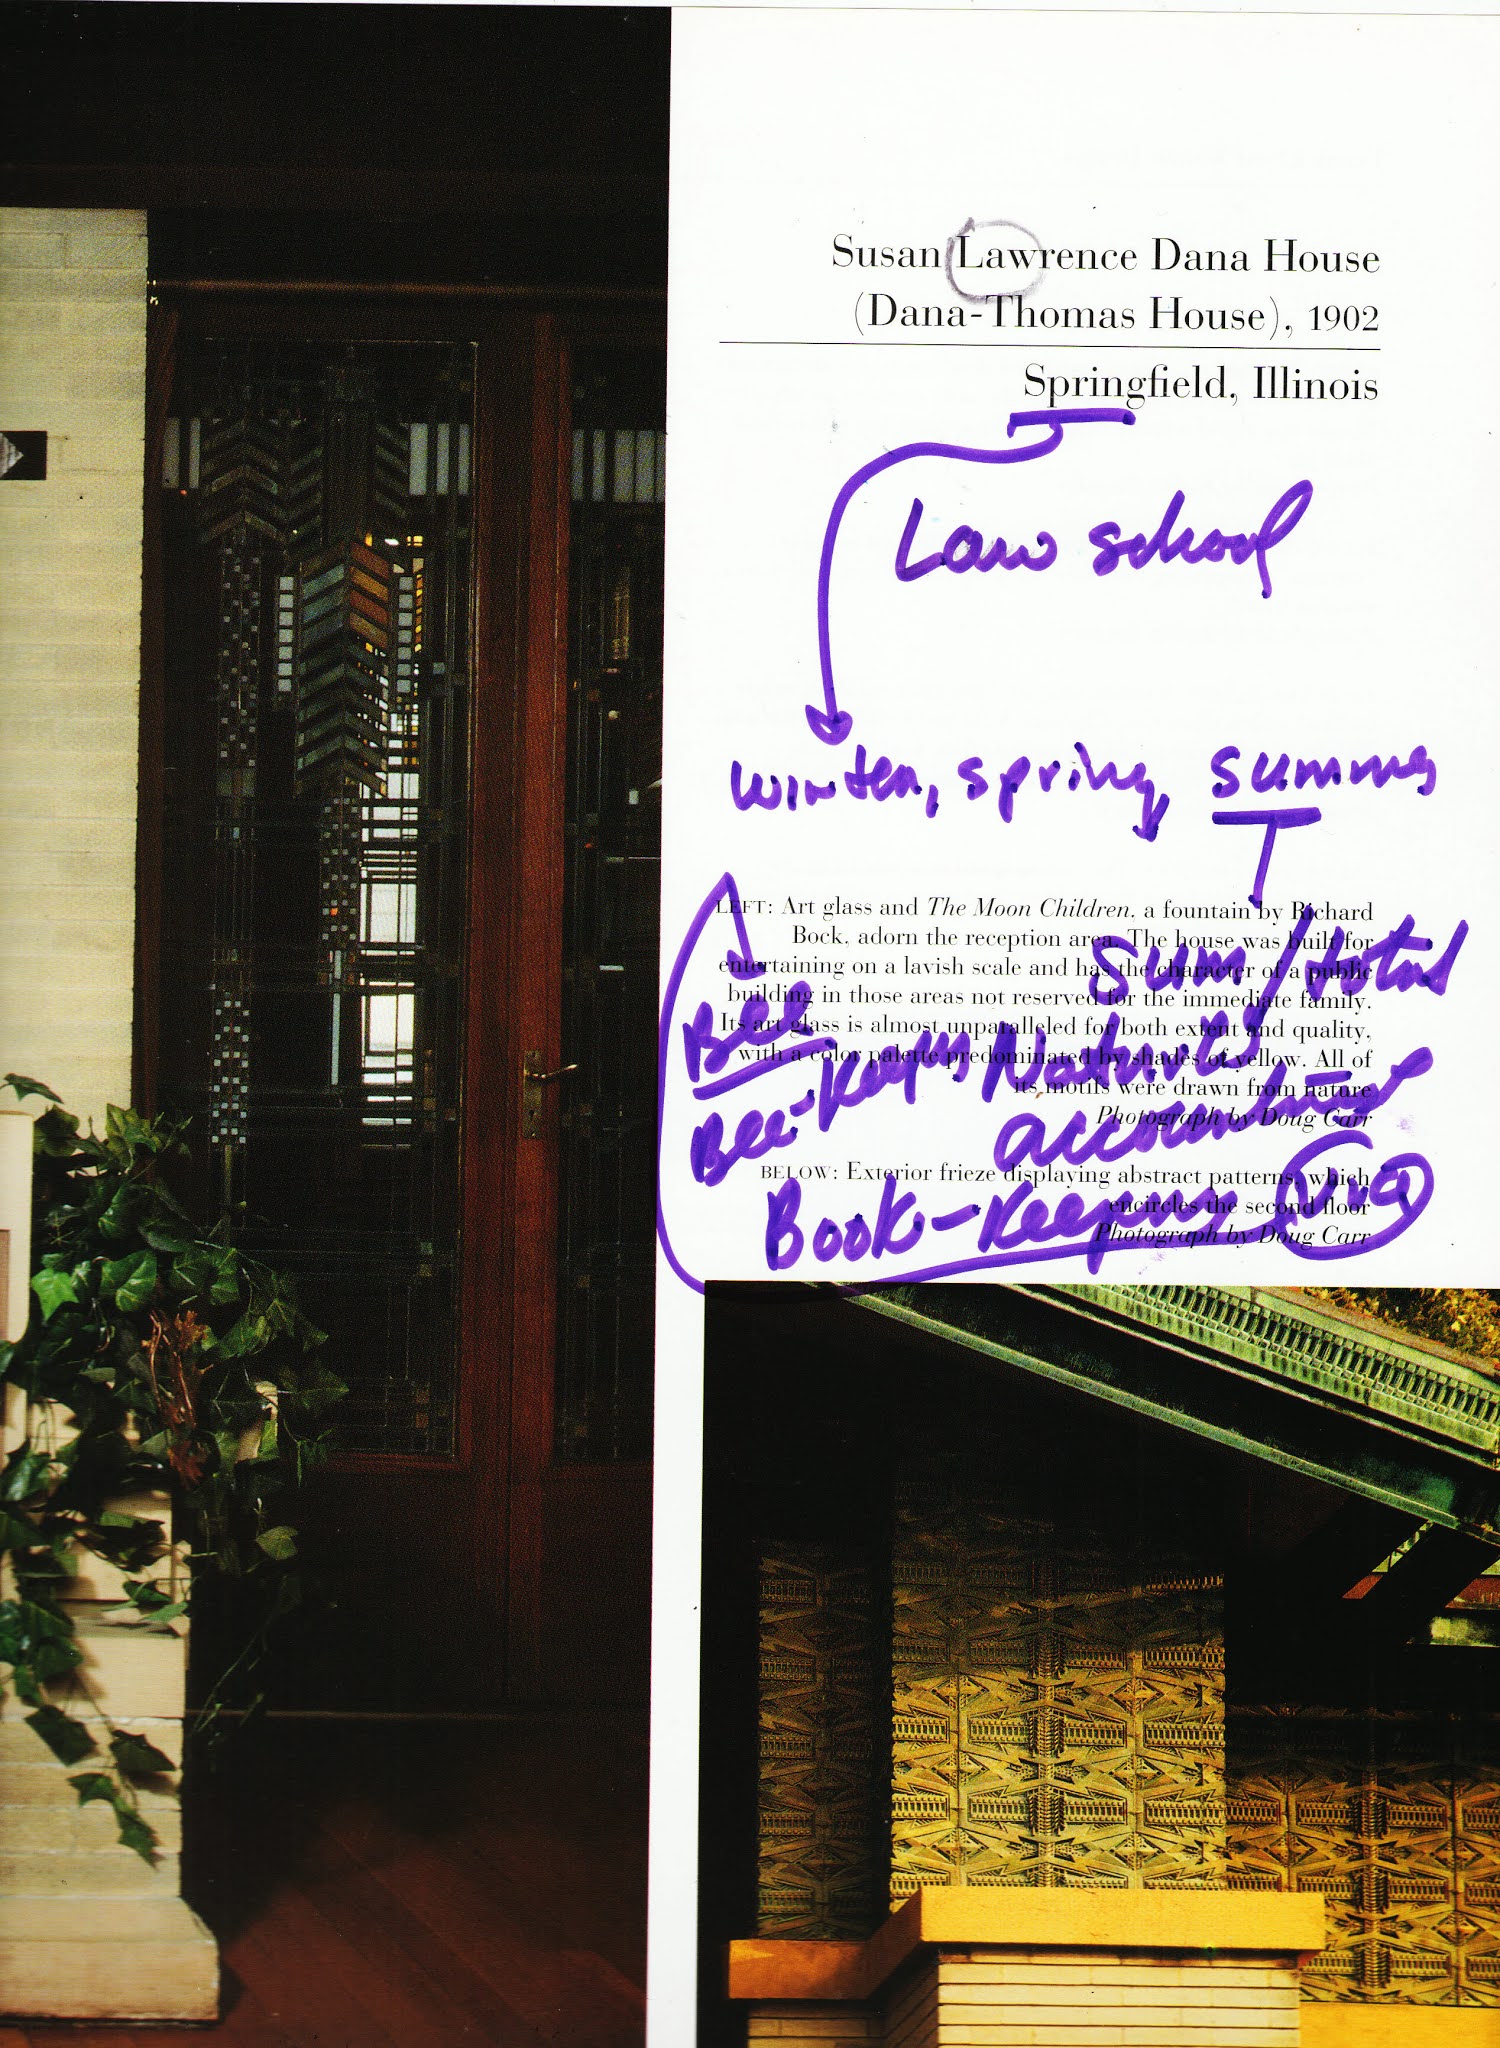 Susan Lawrence Dana House
(Dana-Thomas House), 1902
Springfield, Illinois
Law school
winter, spring, summer
LEFT: Art glass and The Moon Children, a fountain by Richard
Bock, adorn the reception area. The house was built for
entertaining on a lavish scale and has the character of a public
building in those areas not reserved for the immediate family.
Its art glass is almost unparalleled for both extent and quality,
with a color palette predominated by shades of yellow. All of
its motifs were drawn from nature
Photograph by Doug Carr
sum/total
Bee
Bee-keeping
Natures
accountant
BELOW: Exterior frieze displaying abstract patterns, which
encircles the second floor
Photograph by Doug Carr
Book-keeping